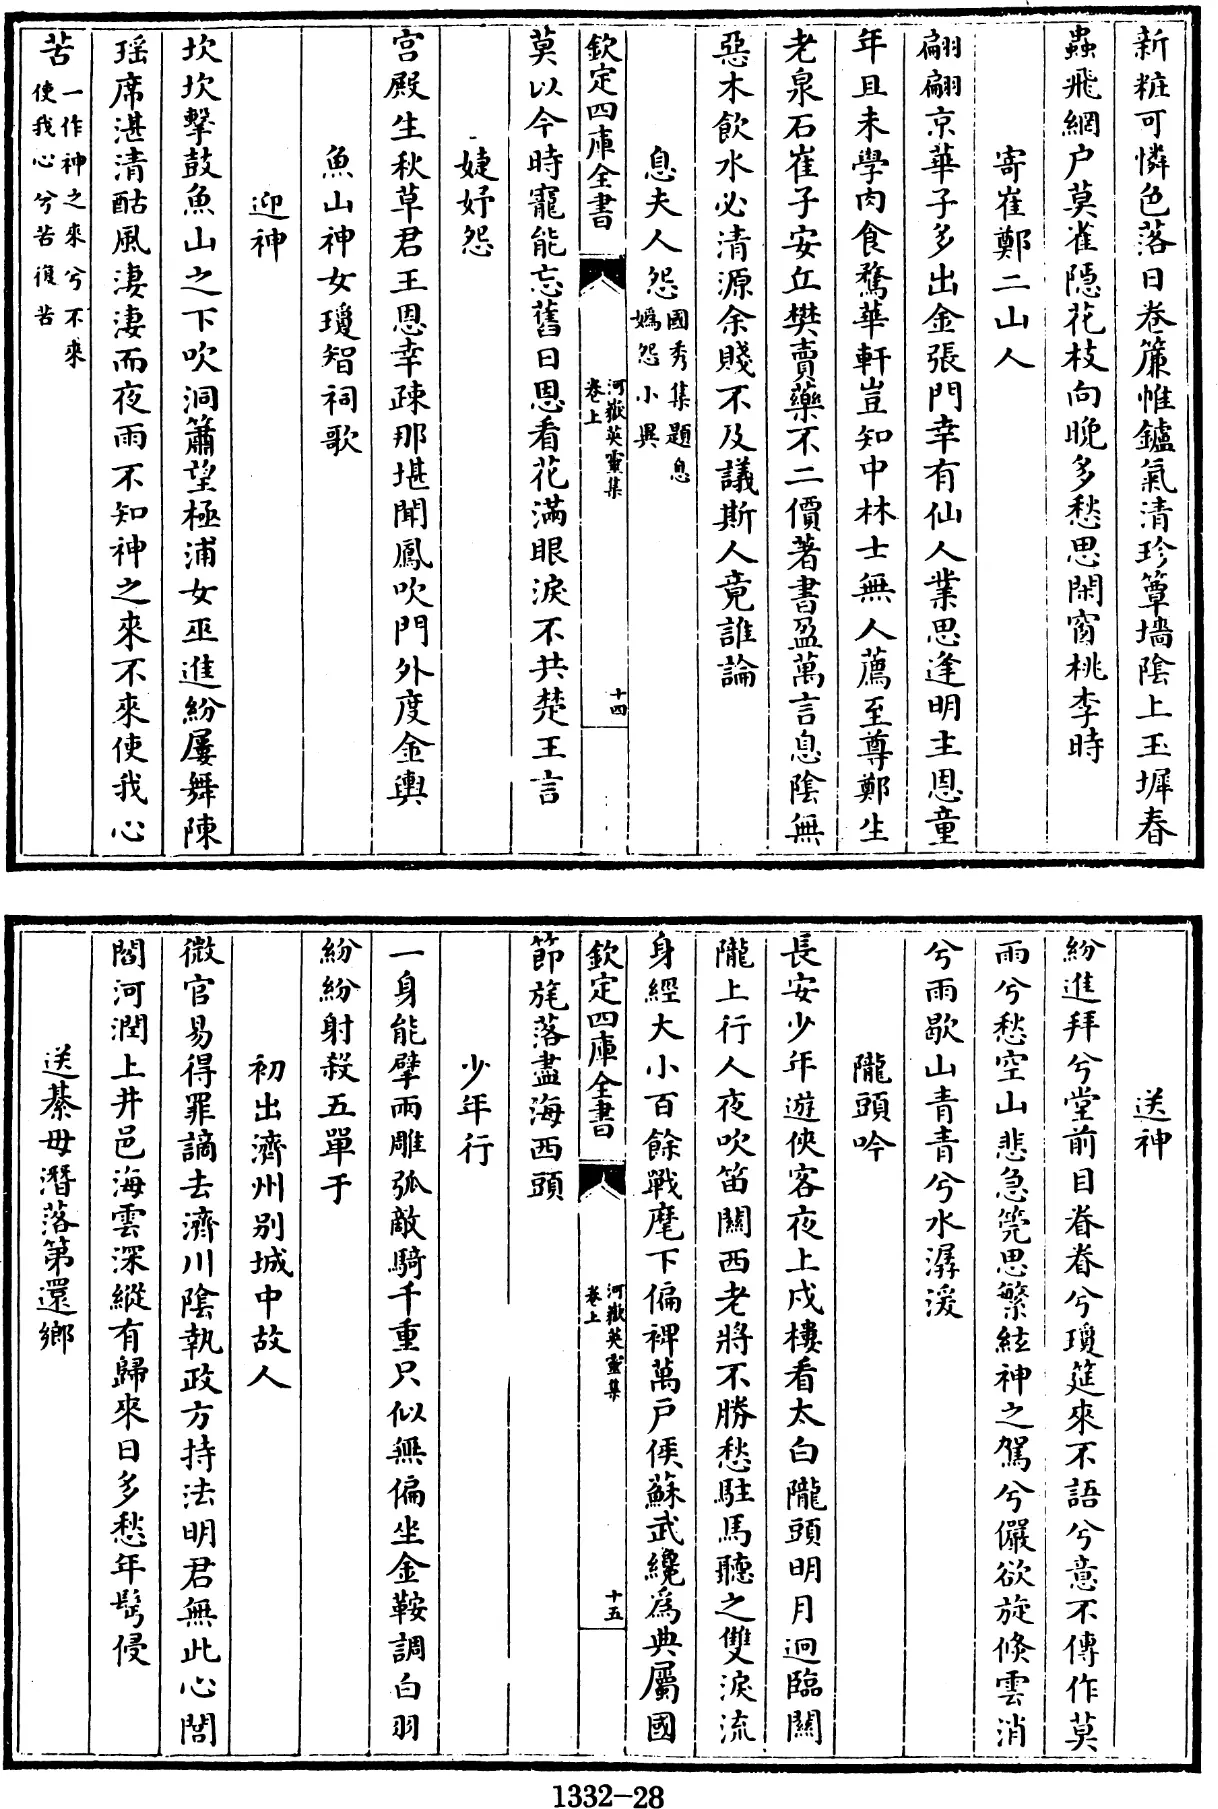 新粧可憐色落日卷簾帷鑪氣清珍簟墻陰上玉墀春
蟲飛網户莫雀隱花枝向晚多愁思閑窗桃李時
寄崔鄭二山人
翩翩京華子多出金張門幸有仙人業思逢明主恩童
年且未學肉食騖華軒豈知中林士無人薦至尊鄭生
老泉石崔子安丘樊賣藥不二價著書盈萬言息陰無
惡木飲水必清源余賤不及議斯人竟誰論
息夫人怨國秀集題息
媯怨小異
欽定四庫全書
河嶽英靈集
卷上
十四
莫以今時寵能忘舊日恩看花滿眼淚不共楚王言
婕妤怨
宫殿生秋草君王恩幸疎那堪聞鳳吹門外度金輿
魚山神女瓊智祠歌
迎神
坎坎擊鼓魚山之下吹洞簫望極浦女巫進紛屢舞陳
瑶席湛清酤風淒淒而夜雨不知神之來不來使我心
苦一作神之來兮不來
使我心兮苦復苦
送神
紛進拜兮堂前目眷眷兮瓊筵來不語兮意不傳作莫
雨兮愁空山悲急筦思繁絃神之駕兮儼欲旋倐雲消
兮雨歇山青青兮水潺湲
隴頭吟
長安少年遊俠客夜上戍樓看太白隴頭明月迥臨關
隴上行人夜吹笛關西老將不勝愁駐馬聽之雙淚流
身經大小百餘戰麾下偏裨萬户侯蘇武纔爲典屬國
欽定四庫全書
河嶽英靈集
卷上
十五
節旄落盡海西頭
少年行
一身能擘兩雕弧敵騎千重只似無偏坐金鞍調白羽
紛紛射殺五單于
初出濟州别城中故人
微官易得罪謫去濟川陰執政方持法明君無此心閭
閻河潤上井邑海雲深縱有歸來日多愁年鬂侵
送綦毋潛落第還鄉
1332-28